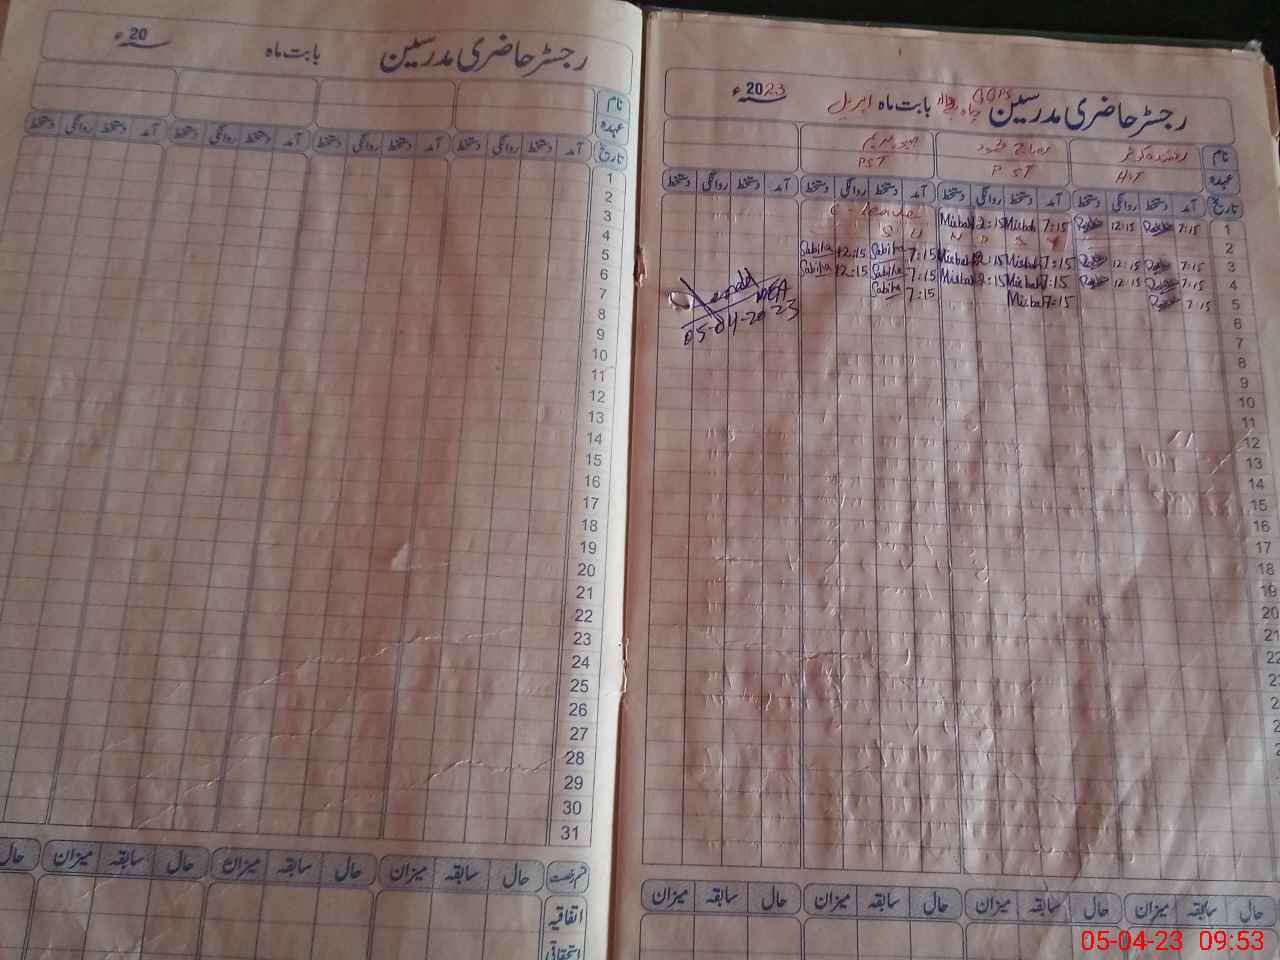 رجسٹر حاضری مدرسین بابت ماہ 20ء
نام
عہدہ
تاریخ آمد دستخط روانگی دستخط آمد دستخط روانگی دستخط آمد دستخط روانگی دستخط آمد دستخط روانگی دستخط
1
2
3
4
5
6
7
8
9
10
11
12
13
14
15
16
17
18
19
20
21
22
23
24
25
26
27
28
29
30
31
حال سابقہ میزان حال سابقہ میزان حال سابقہ میزان حال
اتفاقیہ
استحقاقی
GGPS
رجسٹر حاضری مدرسین بابت ماہ اپریل 2023ء
نام
عہدہ H.T PST PST
تاریخ آمد دستخط روانگی دستخط آمد دستخط روانگی دستخط آمد دستخط روانگی دستخط آمد دستخط روانگی دستخط
1 7:15 12:15 7:15 Misbah 12:15 Misbah C-leave
2 S U N D A Y
3 7:15 12:15 7:15 Misbah 12:15 Misbah 7:15 Sabiha 12:15 Sabiha
4 7:15 12:15 7:15 Misbah 12:15 Misbah 7:15 Sabiha 12:15 Sabiha
5 7:15 7:15 Misbah 7:15 Sabiha
05-04-2023
6
7
8
9
10
11
12
13
14
15
16
17
18
19
20
21
22
حال سابقہ میزان حال سابقہ میزان حال سابقہ میزان حال سابقہ میزان
05-04-23 09:53